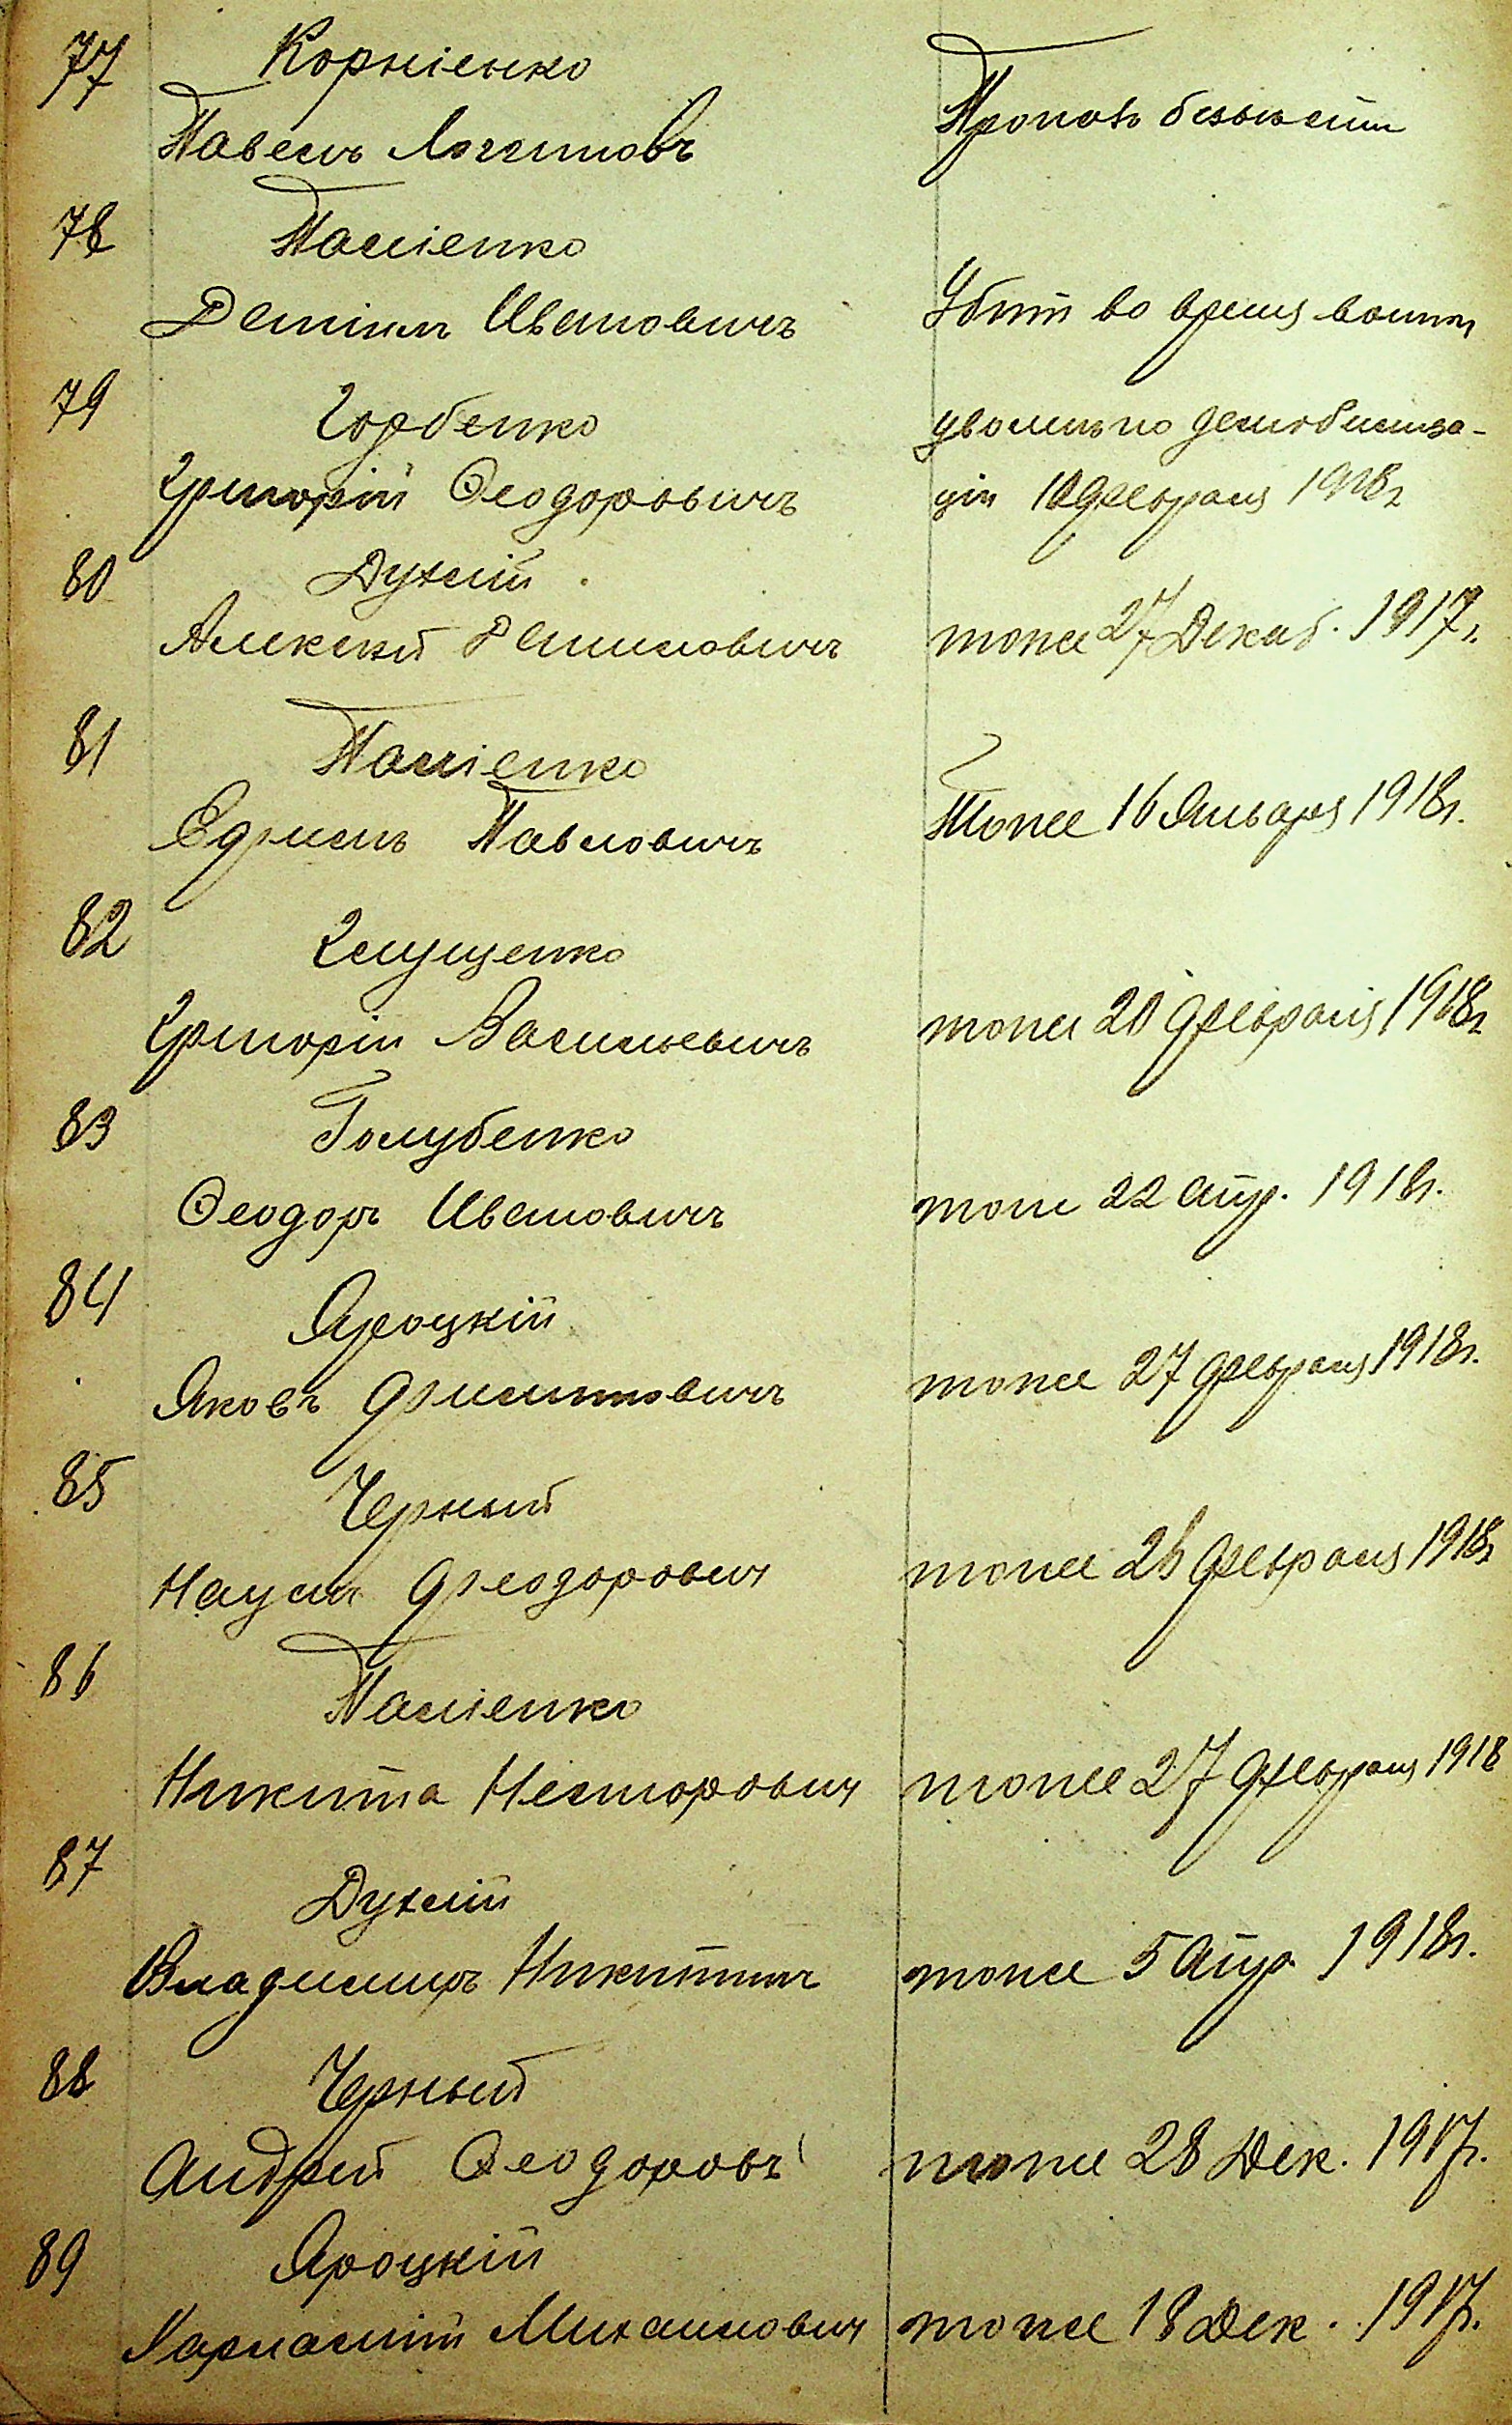 77 Корніенко
Павелъ Логгиновъ Пропалъ безъ вести
78 Паліенко
Даніилъ Ивановичъ Убит во время войны
79 Горбенко уволенъ по демобилиза-
Григорій Феодоровичъ ціи 10 февраля 1918 г
80 Духній
Алексей Даниловичъ тоже 27 Декаб. 1917 г.
81 Паліенко
Ефимъ Павловичъ Тоже 16 Января 1918 г.
82 Глущенко
Григорій Васильевичъ тоже 20 февраля 1918 г
83 Голубенко
Феодоръ Ивановичъ тоже 22 Апр. 1918 г.
84 Яроцкій
Яковъ Филиповичъ тоже 27 февраля 1918 г.
85 Черный
Наумъ Феодорович тоже февраля 1918 г
86 Паліенко
Никита Несторович тоже 27 февраля 1918
87 Духній
Владимиръ Никитич тоже 5 Апр. 1918 г.
88 Черный
Андрей Феодоровъ тоже 28 Дек. 1917 г.
89 Яроцкій
Михаилович тоже 18 Дек. 1917 г.